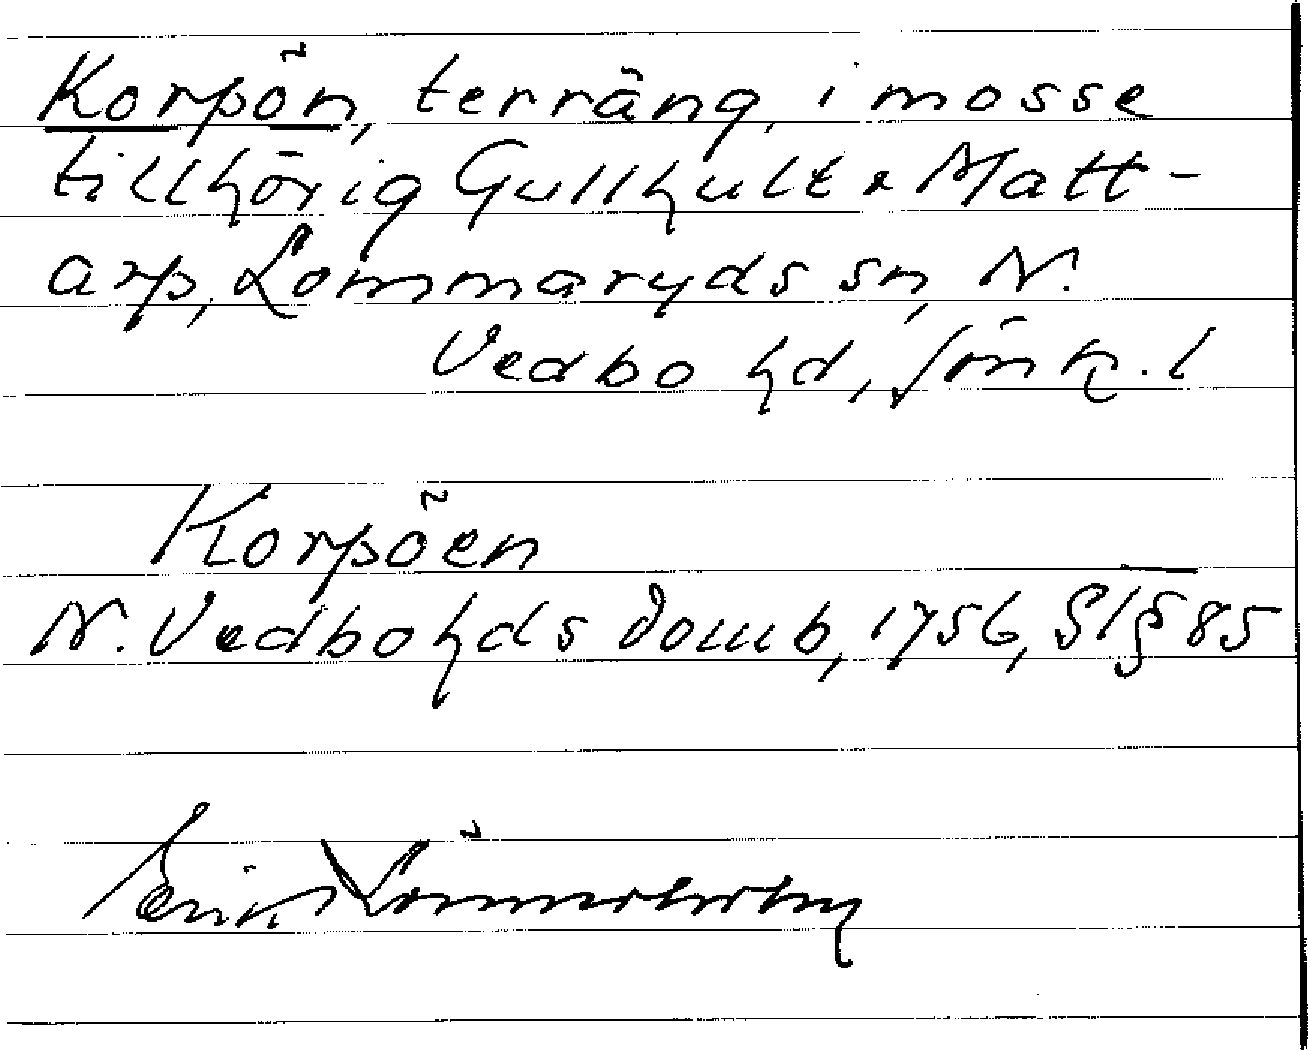 Korpön, terräng i mosse
tillhörig Gullhult & Matt-
arp, Lommaryds sn, N.
Vedbo hd, Jönk. l
Korpöen
N. Vedbo hds domb, 1756, St § 85
Erik